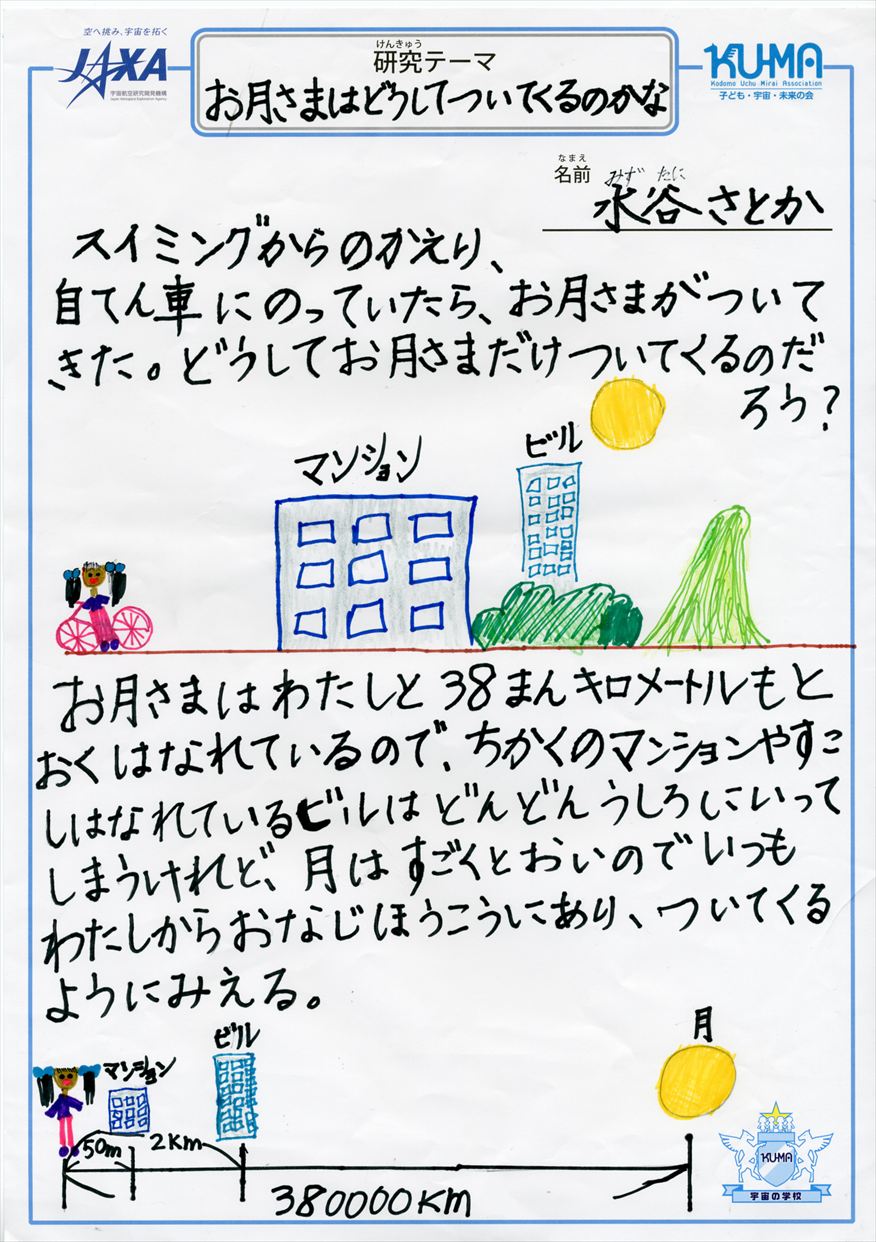 空へ挑み、宇宙を拓く
JAXA
宇宙航空研究開発機構
Japan Aerospace Exploration Agency
けんきゅう
研究テーマ
お月さまはどうしてついてくるのかな
KU-MA
Kodomo Uchu Mirai Association
子ども・宇宙・未来の会
なまえ
名前
みず たに
水谷さとか
スイミングからのかえり、
自てん車にのっていたら、お月さまがついて
きた。どうしてお月さまだけついてくるのだ
ろう?
マンション
ビル
お月さまはわたしと38まんキロメートルもと
おくはなれているので、ちかくのマンションやすこ
しはなれているビルはどんどんうしろにいって
しまうけれど、月はすごくとおいのでいつも
わたしからおなじほうこうにあり、ついてくる
ようにみえる。
マンション
ビル
月
50m
2Km
380000Km
KUMA
宇宙の学校